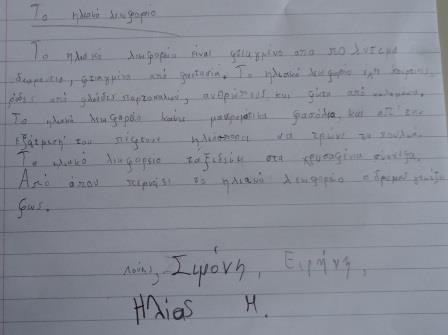 Το ηλιακό λεωφορείο
Το ηλιακό λεωφορείο είναι φτιαγμένο από πολύτιμα
φτιαγμένα από φαντασία. Το ηλιακό λεωφορείο έχει
ρόδες από φλούδες πορτοκαλιού, ανθρώπους και φώτα από
Το ηλιακό λεωφορείο κάνει μαγευτικά φασόλια, και από την
εξάτμισή του πέφτουν ηλιόσποροι να τρώνε τα πουλιά.
Το ηλιακό λεωφορείο ταξιδεύει στα χρυσαφένια σύννεφα.
Από όπου περνάει το ηλιακό λεωφορείο ο δρόμος γεμίζει
φως.
Σιμόνη, Ειρήνη,
Ηλίας Η.